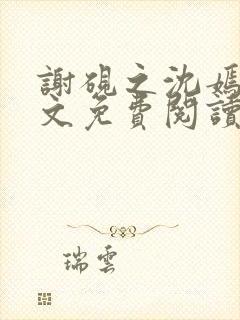 謝硯之沈嫣
文免費閱讀
瑞雲